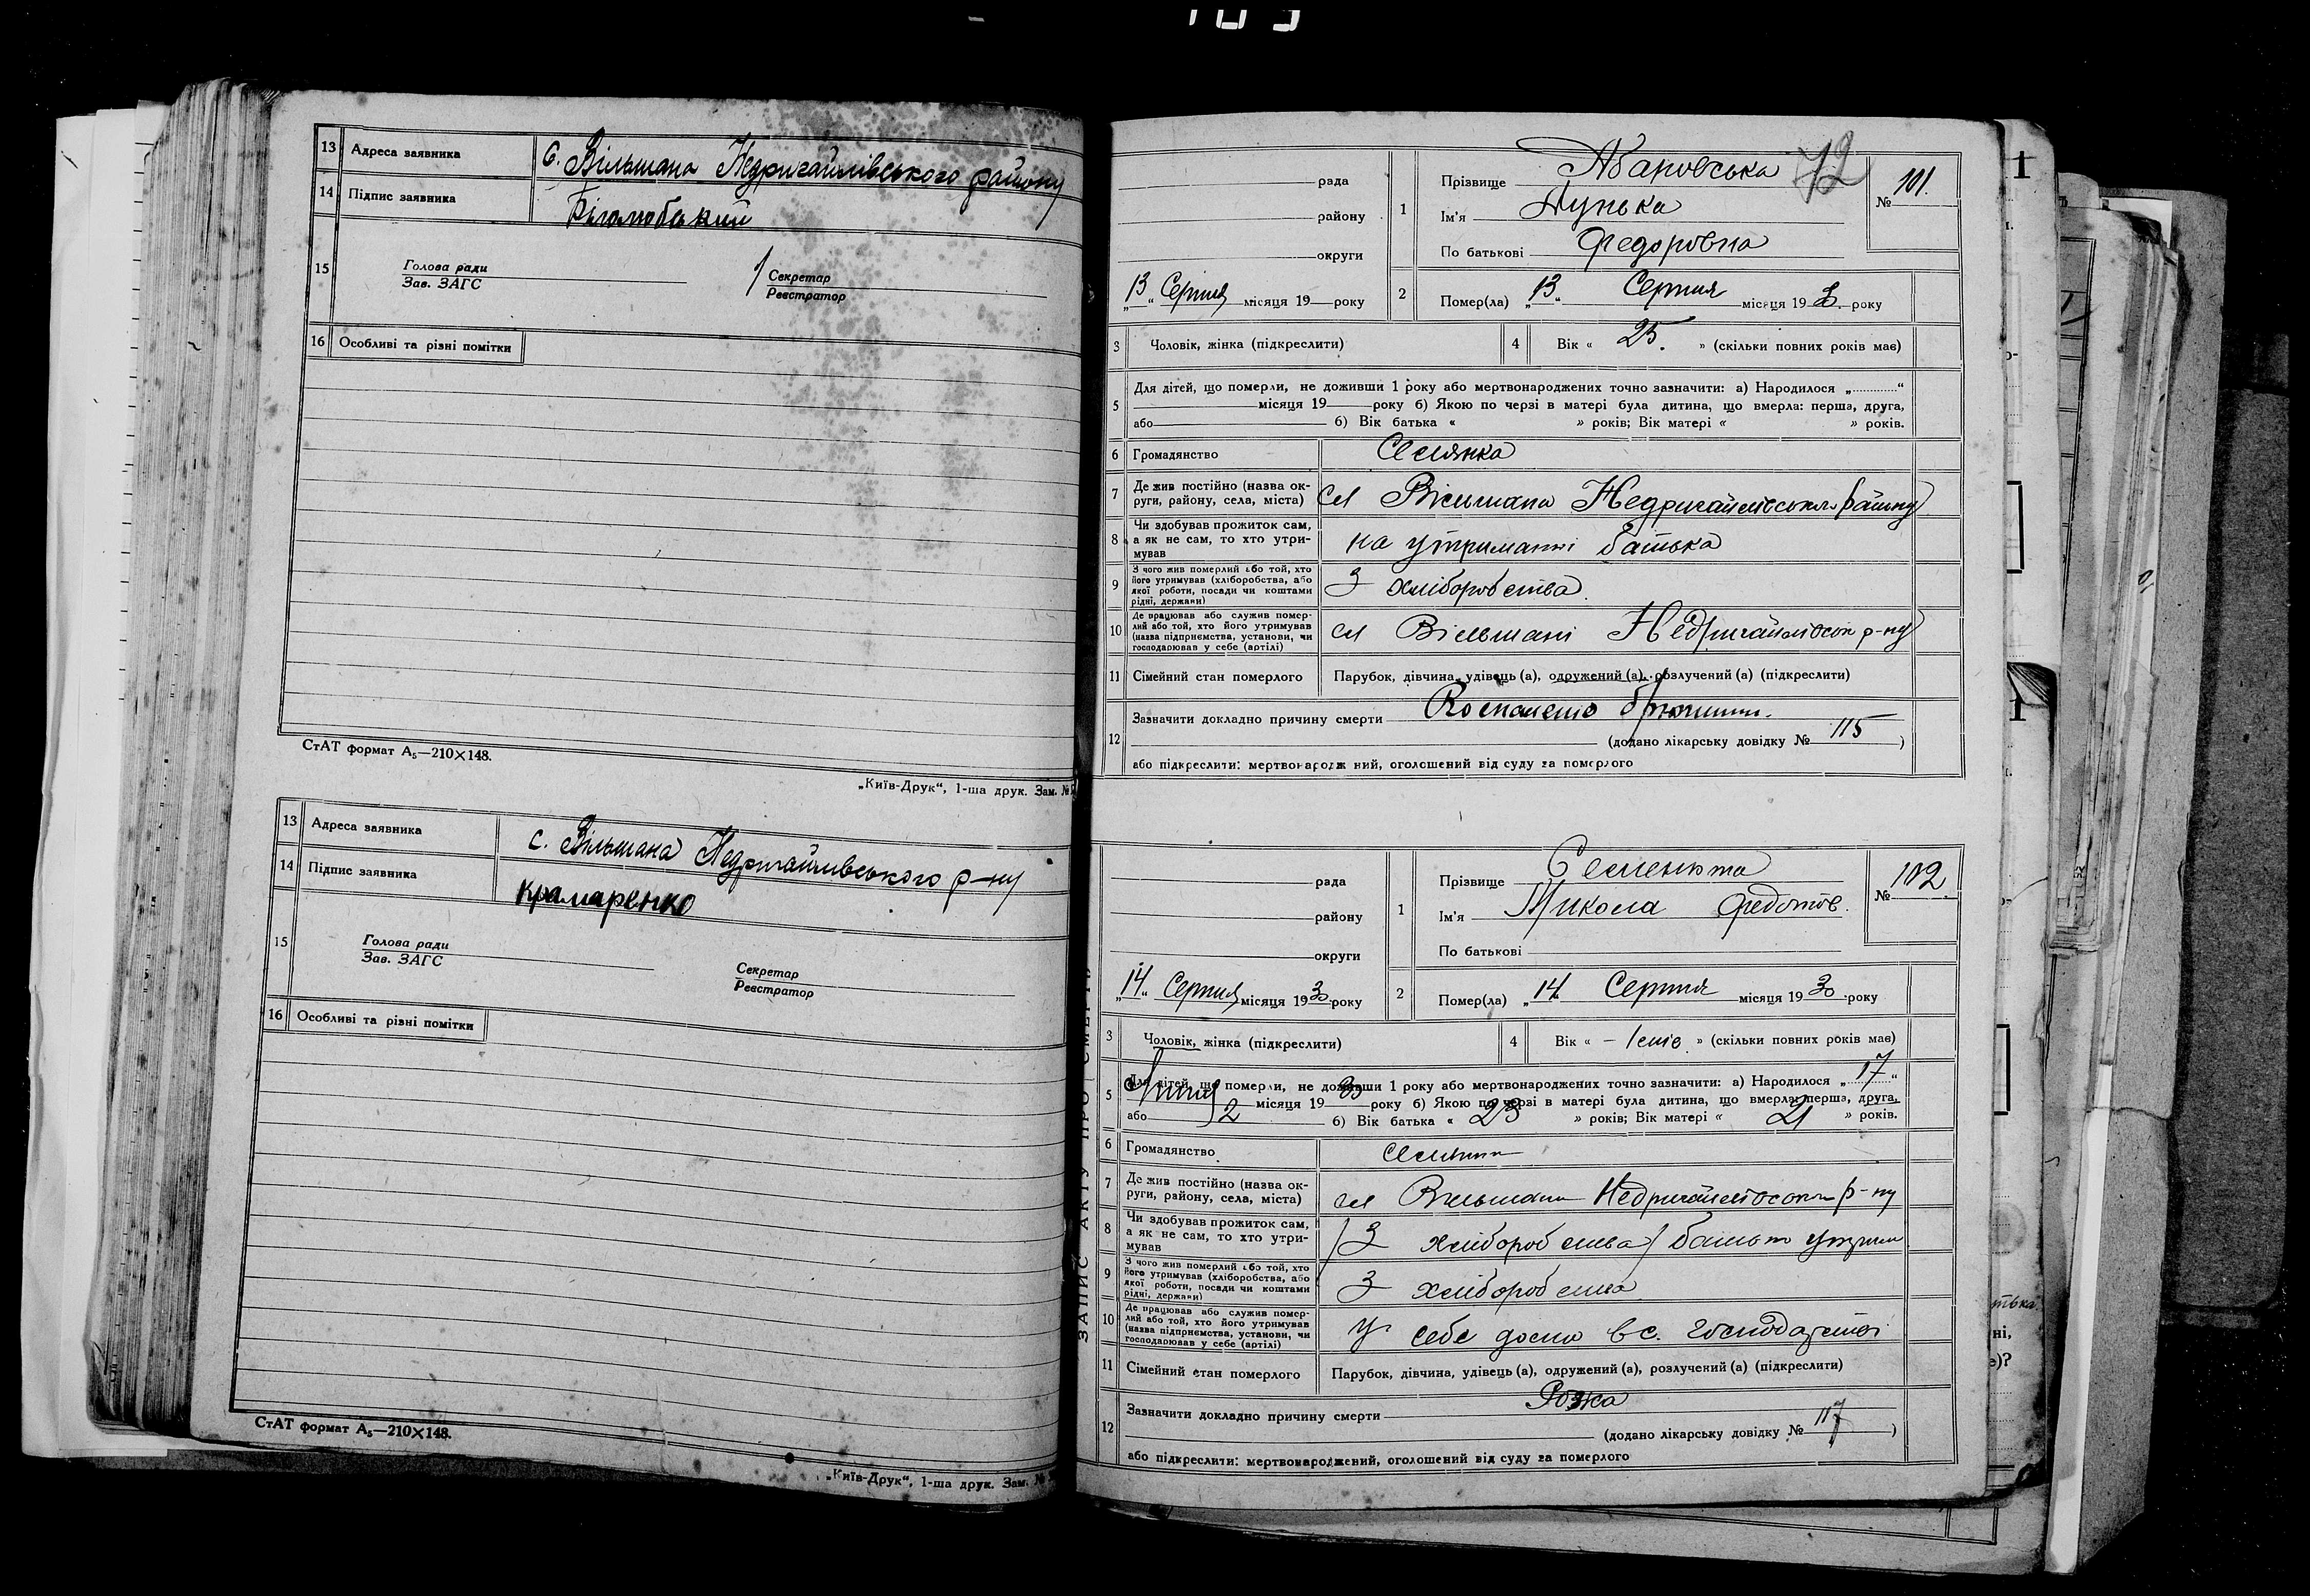 13 Адреса заявника с. Вільшана Недригайлівського району
14 Підпис заявника
15 Голова ради
Зав. ЗАГС
Секретар
Реєстратор
16 Особливі та різні помітки
СтАТ формат А₅—210×148.
„Київ-Друк“, 1-ша друк. Зам. №
13 Адреса заявника с. Вільшана Недригайлівського р-ну
14 Підпис заявника Крамаренко
15 Голова ради
Зав. ЗАГС
Секретар
Реєстратор
16 Особливі та різні помітки
СтАТ формат А₅—210×148.
„Київ-Друк“, 1-ша друк. Зам. №
72
рада
району
округи
„13“ Серпня місяця 19 року
1 Прізвище
Ім'я Дунька
По батькові Федоровна
№ 101.
2 Помер(ла) „13“ Серпня місяця 19 року
3 Чоловік, жінка (підкреслити)
4 Вік « 25. » (скільки повних років має)
5 Для дітей, що померли, не доживши 1 року або мертвонароджених точно зазначити: а) Народилося „ “
місяця 19 року б) Якою по черзі в матері була дитина, що вмерла: перша, друга,
або б) Вік батька « » років; Вік матері « » років.
6 Громадянство Селянка
7 Де жив постійно (назва ок-
руги, району, села, міста) сл Вільшана Недригайлівськ. району
8 Чи здобував прожиток сам,
а як не сам, то хто утри-
мував на утриманні батька
9 З чого жив померлий або той, хто
його утримував (хліборобства, або
якої роботи, посади чи коштами
рідні, держави) З хліборобства
10 Де працював або служив помер-
лий або той, хто його утримував
(назва підприємства, установи, чи
господарював у себе (артілі) сл Вільшані Недригайлівськ р-ну
11 Сімейний стан померлого Парубок, дівчина, удівець (а), одружений (а), розлучений (а) (підкреслити)
12 Зазначити докладно причину смерти
(додано лікарську довідку № 115 )
або підкреслити: мертвонароджений, оголошений від суду за померлого
ЗАПИС АКТУ ПРО СМЕРТЬ
рада
району
округи
„14“ Серпня місяця 1930 року
1 Прізвище Семенюта
Ім'я Микола Федотов.
По батькові
№ 102.
2 Помер(ла) „14“ Серпня місяця 1930 року
3 Чоловік, жінка (підкреслити)
4 Вік « – 1 міс. » (скільки повних років має)
5 Для дітей, що померли, не доживши 1 року або мертвонароджених точно зазначити: а) Народилося „17“
Липня місяця 1930 року б) Якою по черзі в матері була дитина, що вмерла: перша, друга,
або 2 б) Вік батька « 23 » років; Вік матері « 21 » років.
6 Громадянство
7 Де жив постійно (назва ок-
руги, району, села, міста) сл Вільшани Недригайлівськ р-ну
8 Чи здобував прожиток сам,
а як не сам, то хто утри-
мував (З хліборобства)
9 З чого жив померлий або той, хто
його утримував (хліборобства, або
якої роботи, посади чи коштами
рідні, держави) З хліборобства
10 Де працював або служив помер-
лий або той, хто його утримував
(назва підприємства, установи, чи
господарював у себе (артілі) У себе в с. господарстві
11 Сімейний стан померлого Парубок, дівчина, удівець (а), одружений (а), розлучений (а) (підкреслити)
12 Зазначити докладно причину смерти Рожа
(додано лікарську довідку № 117 )
або підкреслити: мертвонароджений, оголошений від суду за померлого